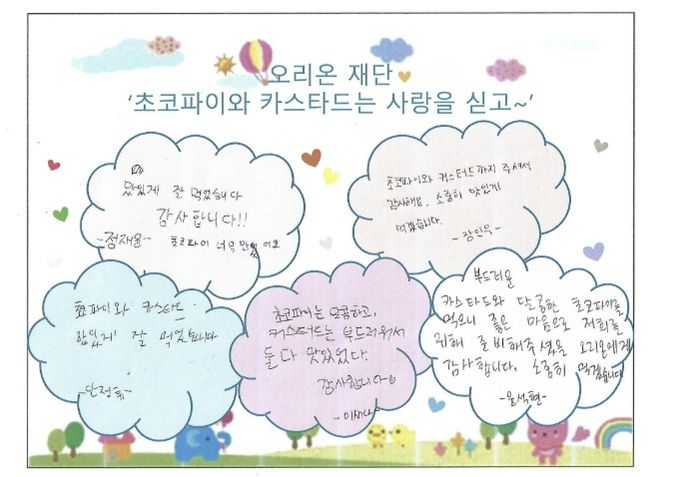 오리온 재단
‘초코파이와 카스타드는 사랑을 싣고~’
맛있게 잘 먹었습니다
감사합니다!!
-정재윤- 초코파이 너무 맛있어요
초코파이와 커스터드까지 주셔서
감사해요. 소중히 맛있게
먹겠습니다.
- 장인우 -
초코파이와 카스타드
맛있게 잘 먹었습니다
초코파이는 달콤하고,
커스터드는 부드러워서
둘 다 맛있었다.
감사합니다
부드러운
카스타드와 달콤한 초코파이를
먹으니 좋은 마음으로 저희를
위해 준비해주셨을 오리온에게
감사합니다. 소중히 먹겠습니다
-윤석현-